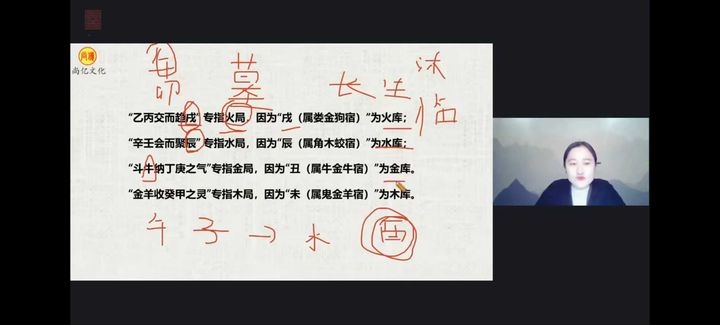 尚亿文化
墓 长生 沐
卯 临
“乙丙交而趋戌”专指火局，因为“戌（属娄金狗宿）”为火库；
“辛壬会而聚辰”专指水局，因为“辰（属角木蛟宿）”为水库；
“斗牛纳丁庚之气”专指金局，因为“丑（属牛金牛宿）”为金库。
“金羊收癸甲之灵”专指木局，因为“未（属鬼金羊宿）”为木库。
午 子 → 水 酉